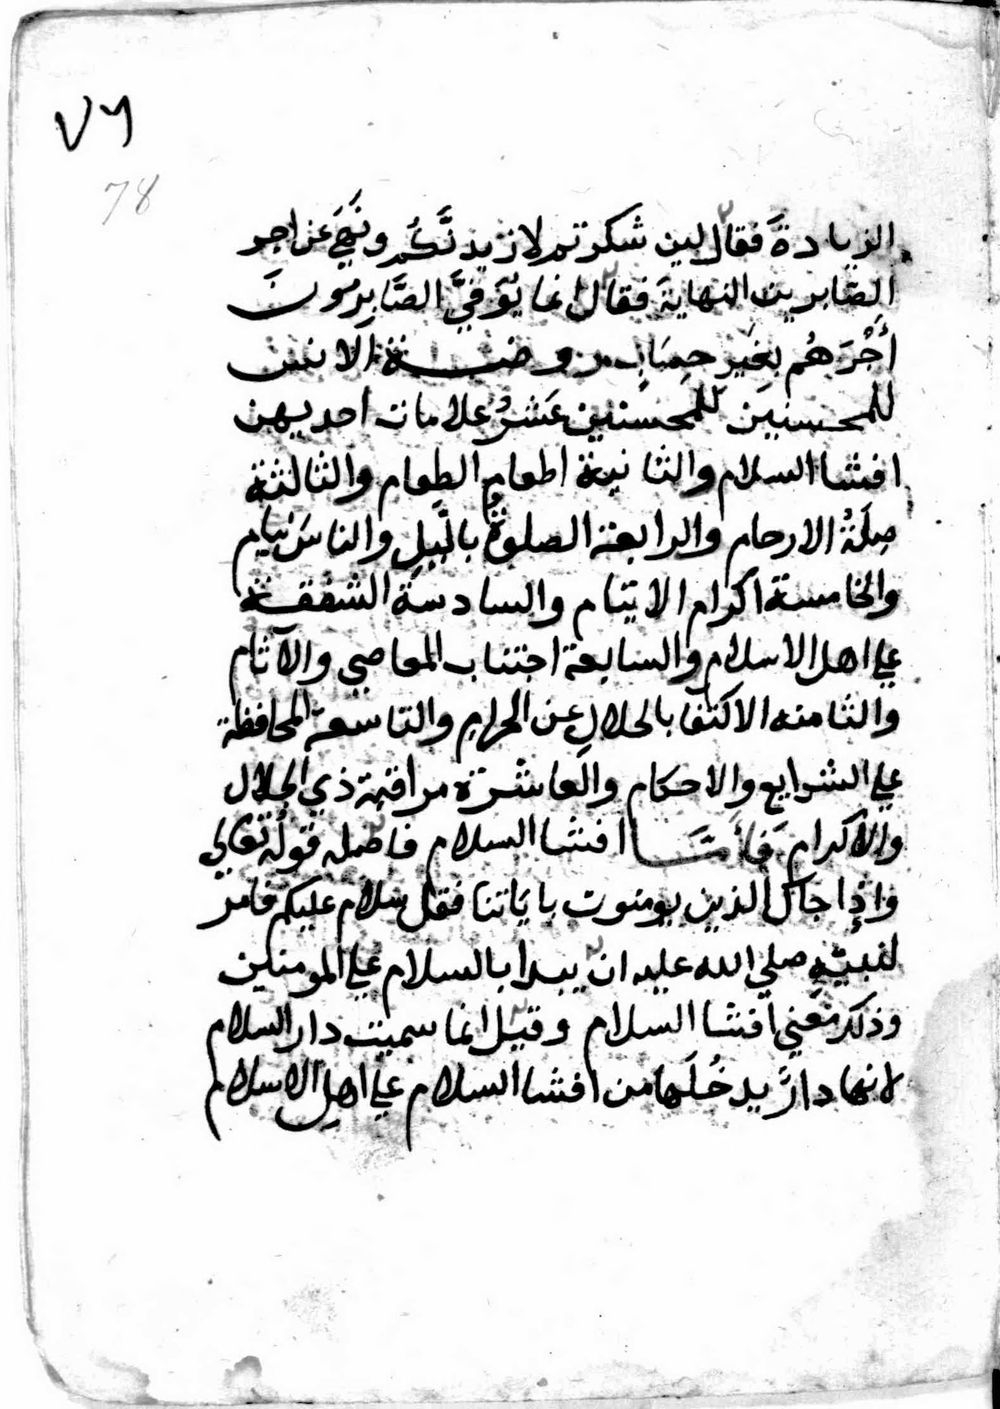 ٧٦
78
الزيادة فقال لين شكرتم لازيدنَّكُم ونَهَي عن اجر
الصّابرين النهاية فقال انما يُوَفيَّ الصَّابِرُونَ
أَجْرَهُم بِغَيرِ حِسَابٍ روضـة الانس
للمحسنين للمحسنين عَشْرُ علامات احديهن
افشا السلام والثانية اطعام الطعام والثالثة
صِلَةُ الارحام والرابعة الصلوةُ بالَّيلِ والناسُ نيام
والخامسة اكرام الايتام والسادسة الشفقة
علي اهل الاسلام والسابعة اجتناب المعاصي والآثام
والثامنه الاكتفا بالحلالِ عن الحرام والتاسعة المحافظة
علي الشرايع والاحكام والعاشرة مراقبة ذي الجلال
والاكرام فَأَمَّــا افشا السلام فاصله قولُه تعالي
وَاذِا جاك الذين يومنون باياتنا فقل سلام عليكم فامر
لنبيّهِ صلي الله عليه ان يبدا بالسلام علي المومنين
وذكر معني افشا السلام وقيل انما سميت دار السلام
لانها دارٌ يدخُلَها من افشا السلام علي اهلِ الاسلام